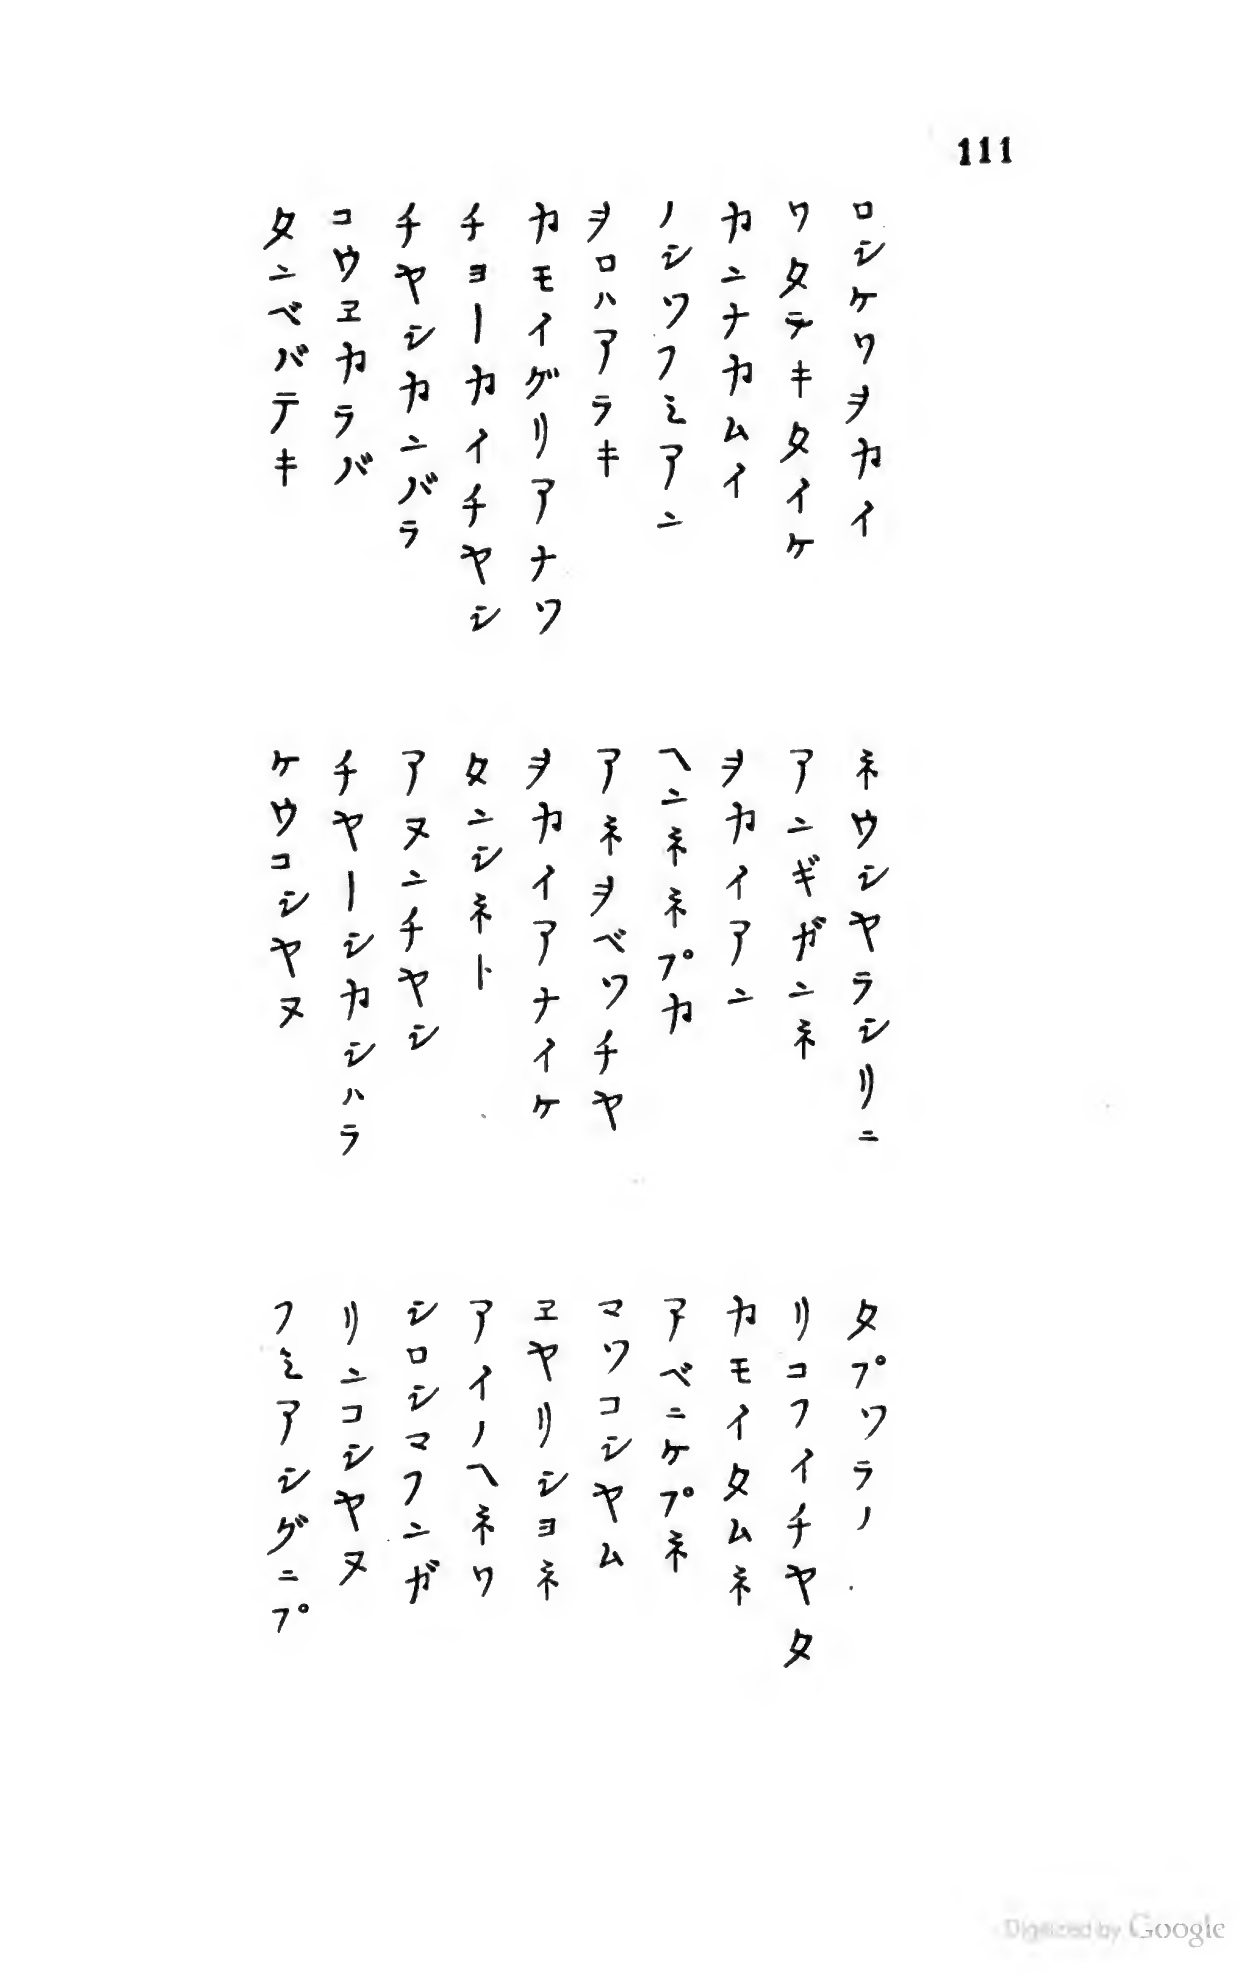 111
ロシケワヲカイ
ワタテキタイケ
カンナカムイ
ノシワフミアン
ヲロハアラキ
カモイグリアナワ
チヨーカイチヤシ
チヤシカンバラ
コウヱカラバ
タンベバテキ
ネウシヤラシリニ
アンギガンネ
ヲカイアン
ヘンネネプカ
アネヲベワチヤ
ヲカイアナイケ
タンシネト
アヌンチヤシ
チヤーシカシハラ
ケウコシヤヌ
タプワラノ
リコフイチヤタ
カモイタムネ
アベニケプネ
マワコシヤム
ヱヤリシヨネ
アイノヘネワ
シロシマフンガ
リンコシヤヌ
フミアシグニプ
Digitized by Google